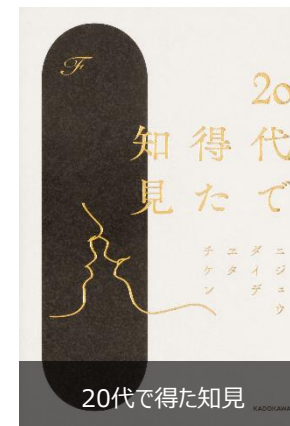 F
20代で
得た
知見
ニジュウ
ダイデ
エタ
チケン
KADOKAWA
20代で得た知見